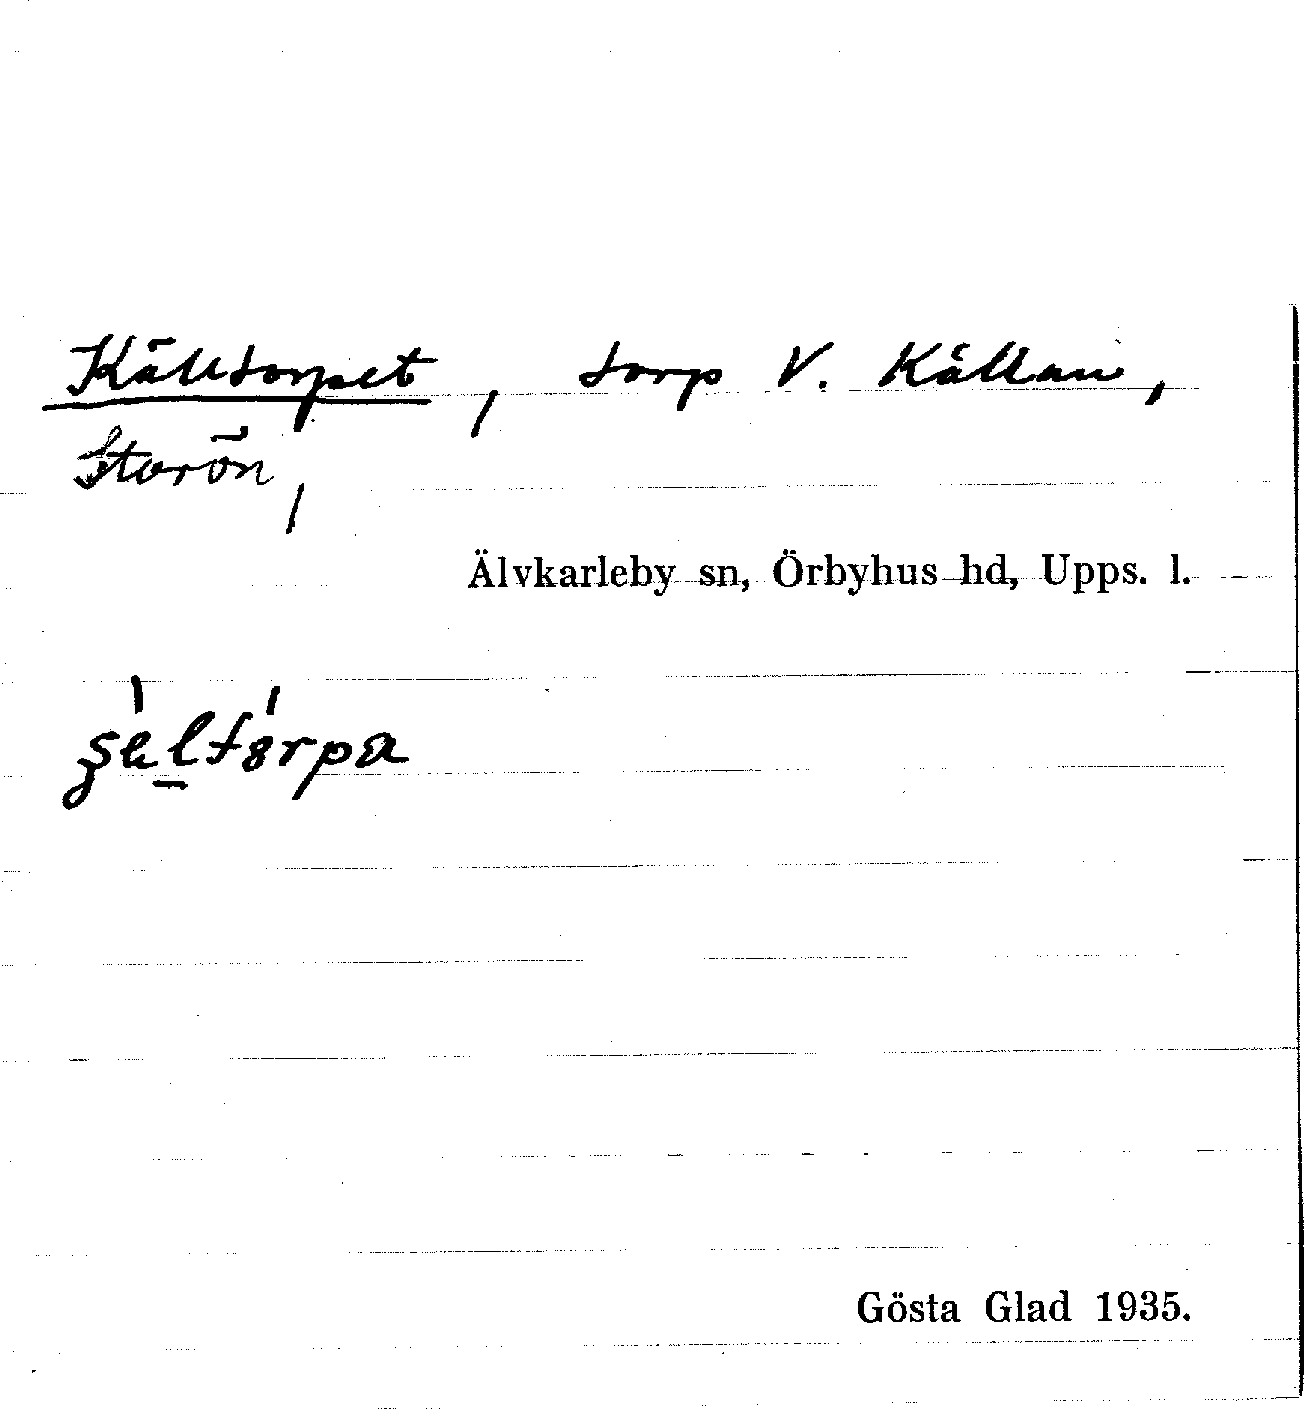 Källtorpet, torp V. Källan,
Storön,
Älvkarleby sn, Örbyhus hd, Upps. l.
Gösta Glad 1935.